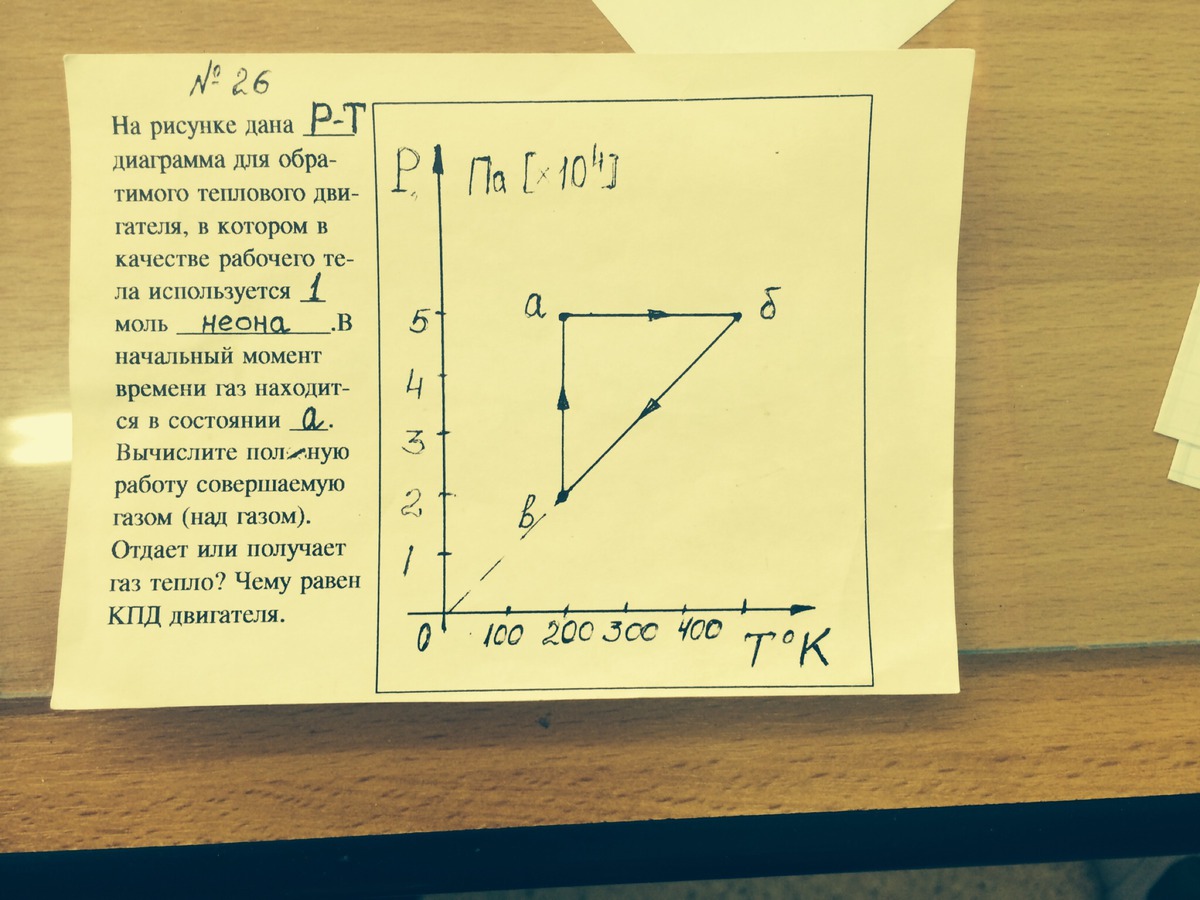 № 26
На рисунке дана P-T
диаграмма для обра-
тимого теплового дви-
гателя, в котором в
качестве рабочего те-
ла используется 1
моль неона.В
начальный момент
времени газ находит-
ся в состоянии а.
Вычислите полную
работу совершаемую
газом (над газом).
Отдает или получает
газ тепло? Чему равен
КПД двигателя.
P, Па [×10⁴]
а б
5
4
3
2
в
1
0 100 200 300 400 T°K